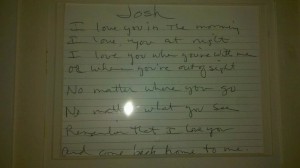 Josh
I love you in the morning
I love you at night
I love you when you're with me
or when you're out of sight
No matter where you go
No matter what you see
Remember that I love you
and come back home to me